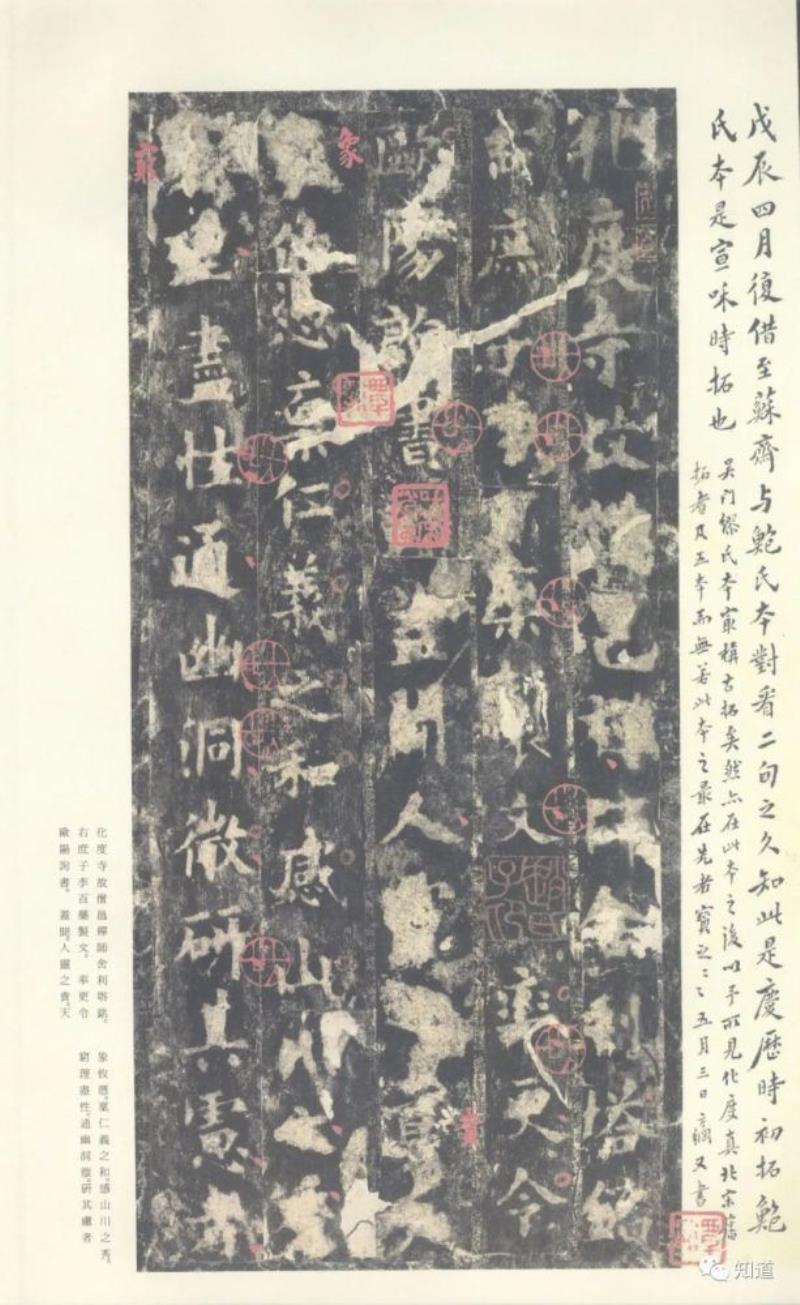 戊辰四月復借至蘇齋与鮑氏本對看二旬之久知此是慶歷時初拓鮑
氏本是宣咊時拓也
吴门繆氏本最稱古拓矣然亦在此本之後以予所見化度真北宋舊
拓者凡五本而無若此本之最在先者寶之二之五月三日 又書
化度寺故僧邕禪師舍利塔銘
右庶子李百藥製文 率更令
歐陽詢書 盖聞人靈之貴天
象攸憑稟仁義之和感山川之秀
窮理盡性通幽洞微研其慮者
象
窮
貴
化度寺故僧邕禪師舍利塔銘。
右庶子李百藥製文。 率更令
歐陽詢書。 蓋聞人靈之貴。天
象攸憑。稟仁義之和。感山川之秀。
窮理盡性。通幽洞微。研其慮者
知道